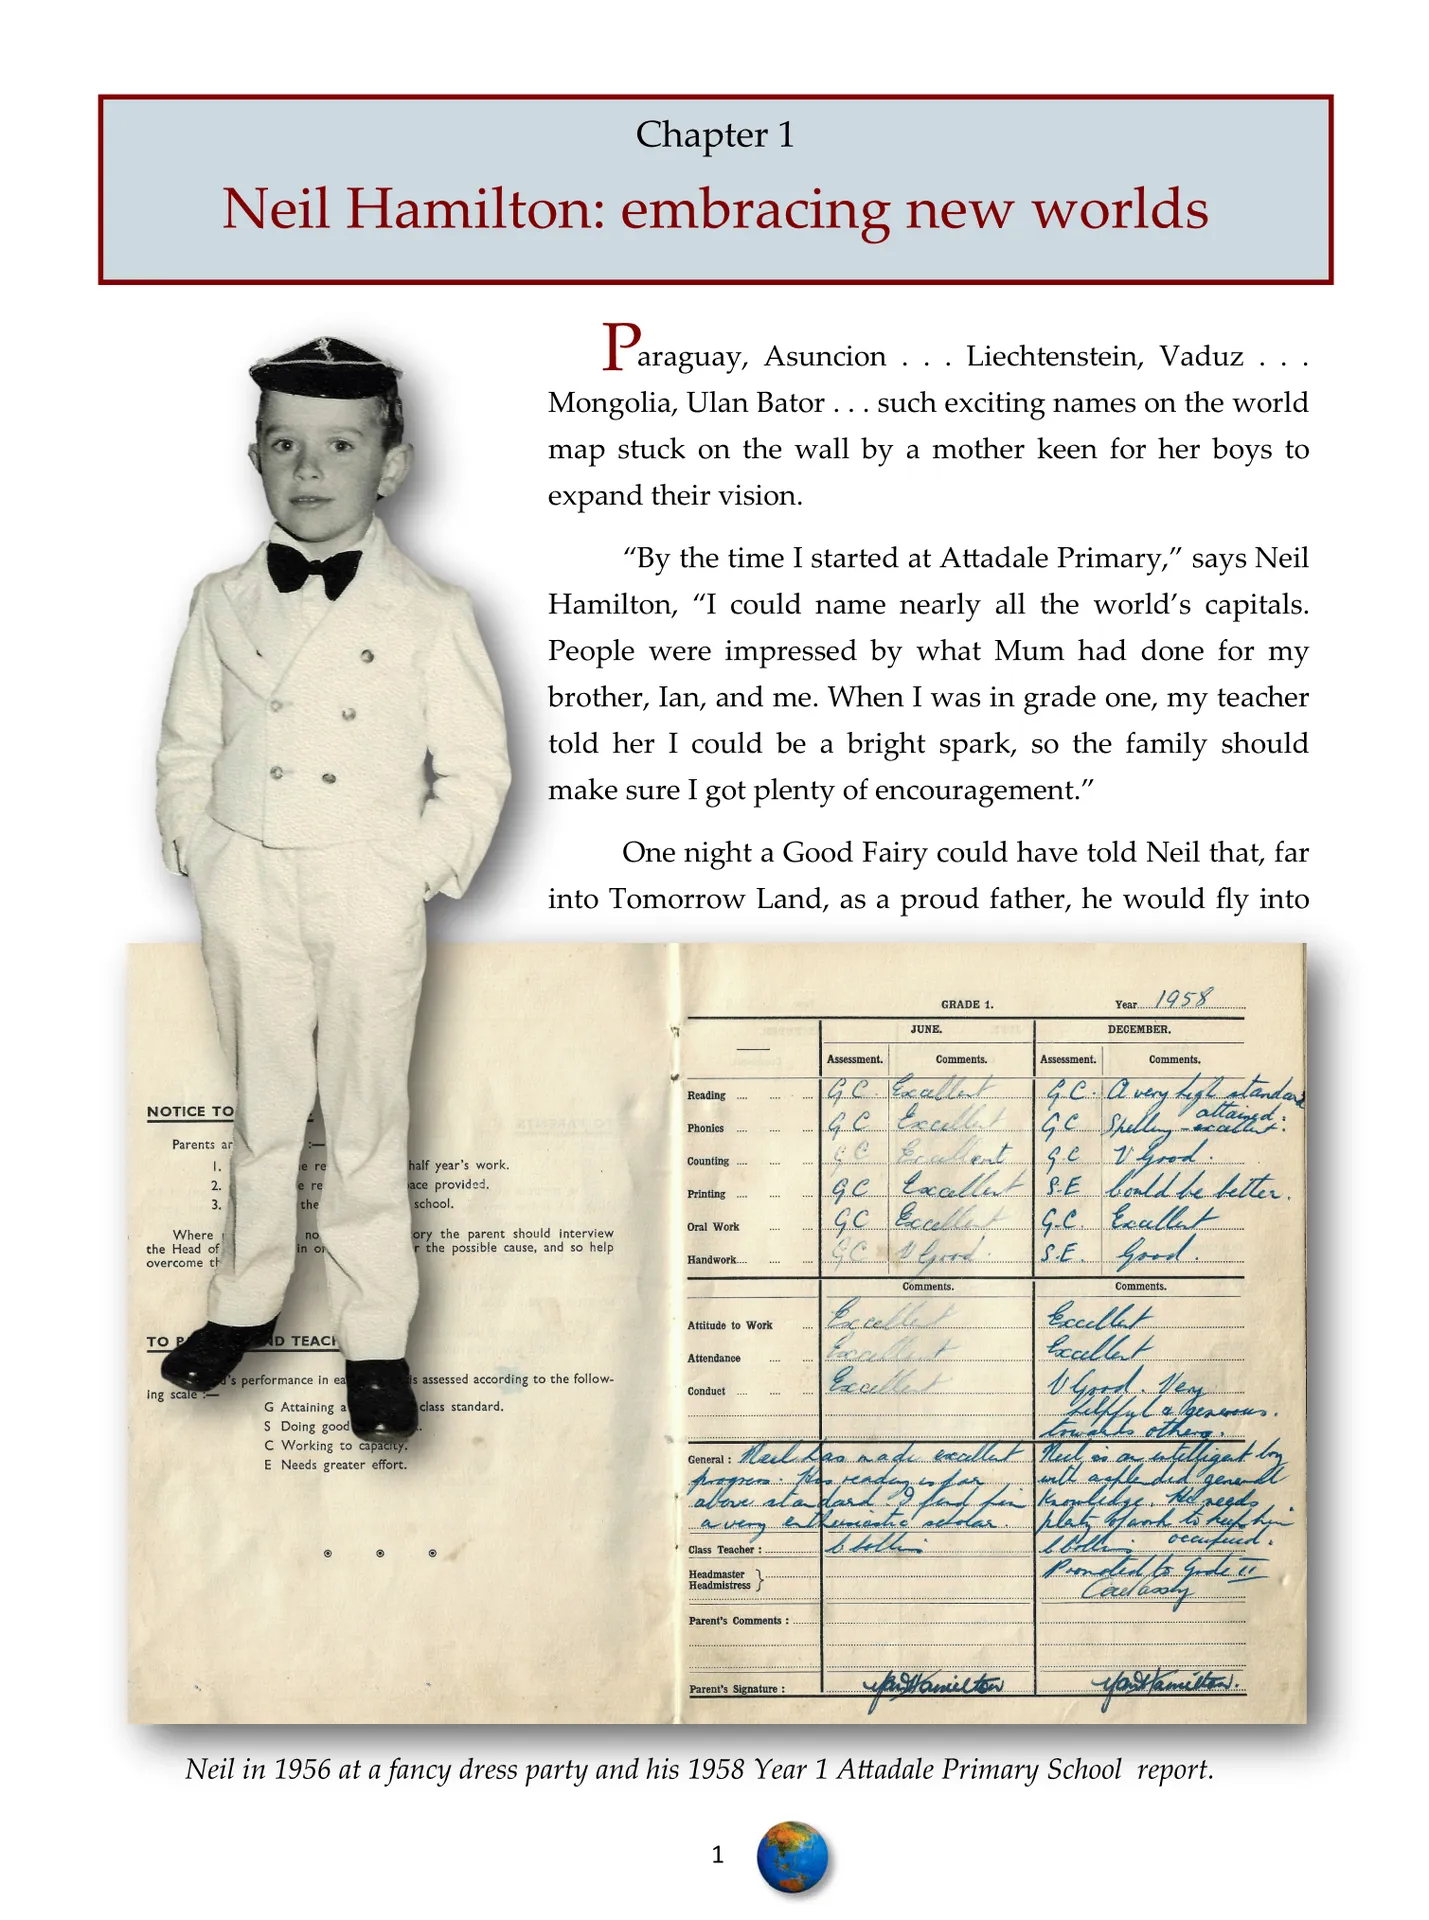 Chapter 1
Neil Hamilton: embracing new worlds
Paraguay, Asuncion . . . Liechtenstein, Vaduz . . .
Mongolia, Ulan Bator . . . such exciting names on the world
map stuck on the wall by a mother keen for her boys to
expand their vision.
“By the time I started at Attadale Primary,” says Neil
Hamilton, “I could name nearly all the world’s capitals.
People were impressed by what Mum had done for my
brother, Ian, and me. When I was in grade one, my teacher
told her I could be a bright spark, so the family should
make sure I got plenty of encouragement.”
One night a Good Fairy could have told Neil that, far
into Tomorrow Land, as a proud father, he would fly into
NOTICE TO
Parents
1. half year's work.
2. provided.
3. the school.
Where the parent should interview
the Head of the possible cause, and so help
overcome
TO AND
performance in is assessed according to the follow-
ing scale :—
G Attaining class standard.
S Doing good
C Working to capacity.
E Needs greater effort.
GRADE 1. Year 1958
JUNE. DECEMBER.
Assessment. Comments. Assessment. Comments.
Reading ... ... ... G C. Excellent G.C. A very high standard
attained.
Phonics ... ... ... G C Excellent G C Spelling - excellent.
Counting ... ... ... G C Excellent G.C V Good.
Printing ... ... ... G C Excellent S.E Could be better.
Oral Work ... ... G C Excellent G.C. Excellent
Handwork... ... ... G C V Good. S.E. Good.
Comments. Comments.
Attitude to Work ... Excellent Excellent
Attendance ... ... Excellent Excellent
Conduct ... ... ... Excellent V Good. Very
helpful & generous
towards others.
General : Neil has made excellent Neil is an intelligent boy
progress. His reading is far with a splendid general
above standard. I find him knowledge. He needs
a very enthusiastic scholar. plenty of work to keep him
occupied.
Class Teacher :
Headmaster Promoted to Grade II
Headmistress
Parent's Comments :
Parent's Signature : Hamilton Hamilton.
Neil in 1956 at a fancy dress party and his 1958 Year 1 Attadale Primary School report.
1